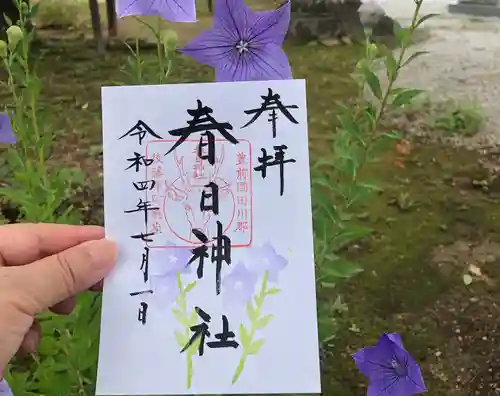 奉拝
春日神社
令和四年七月一日
豊前国田川郡